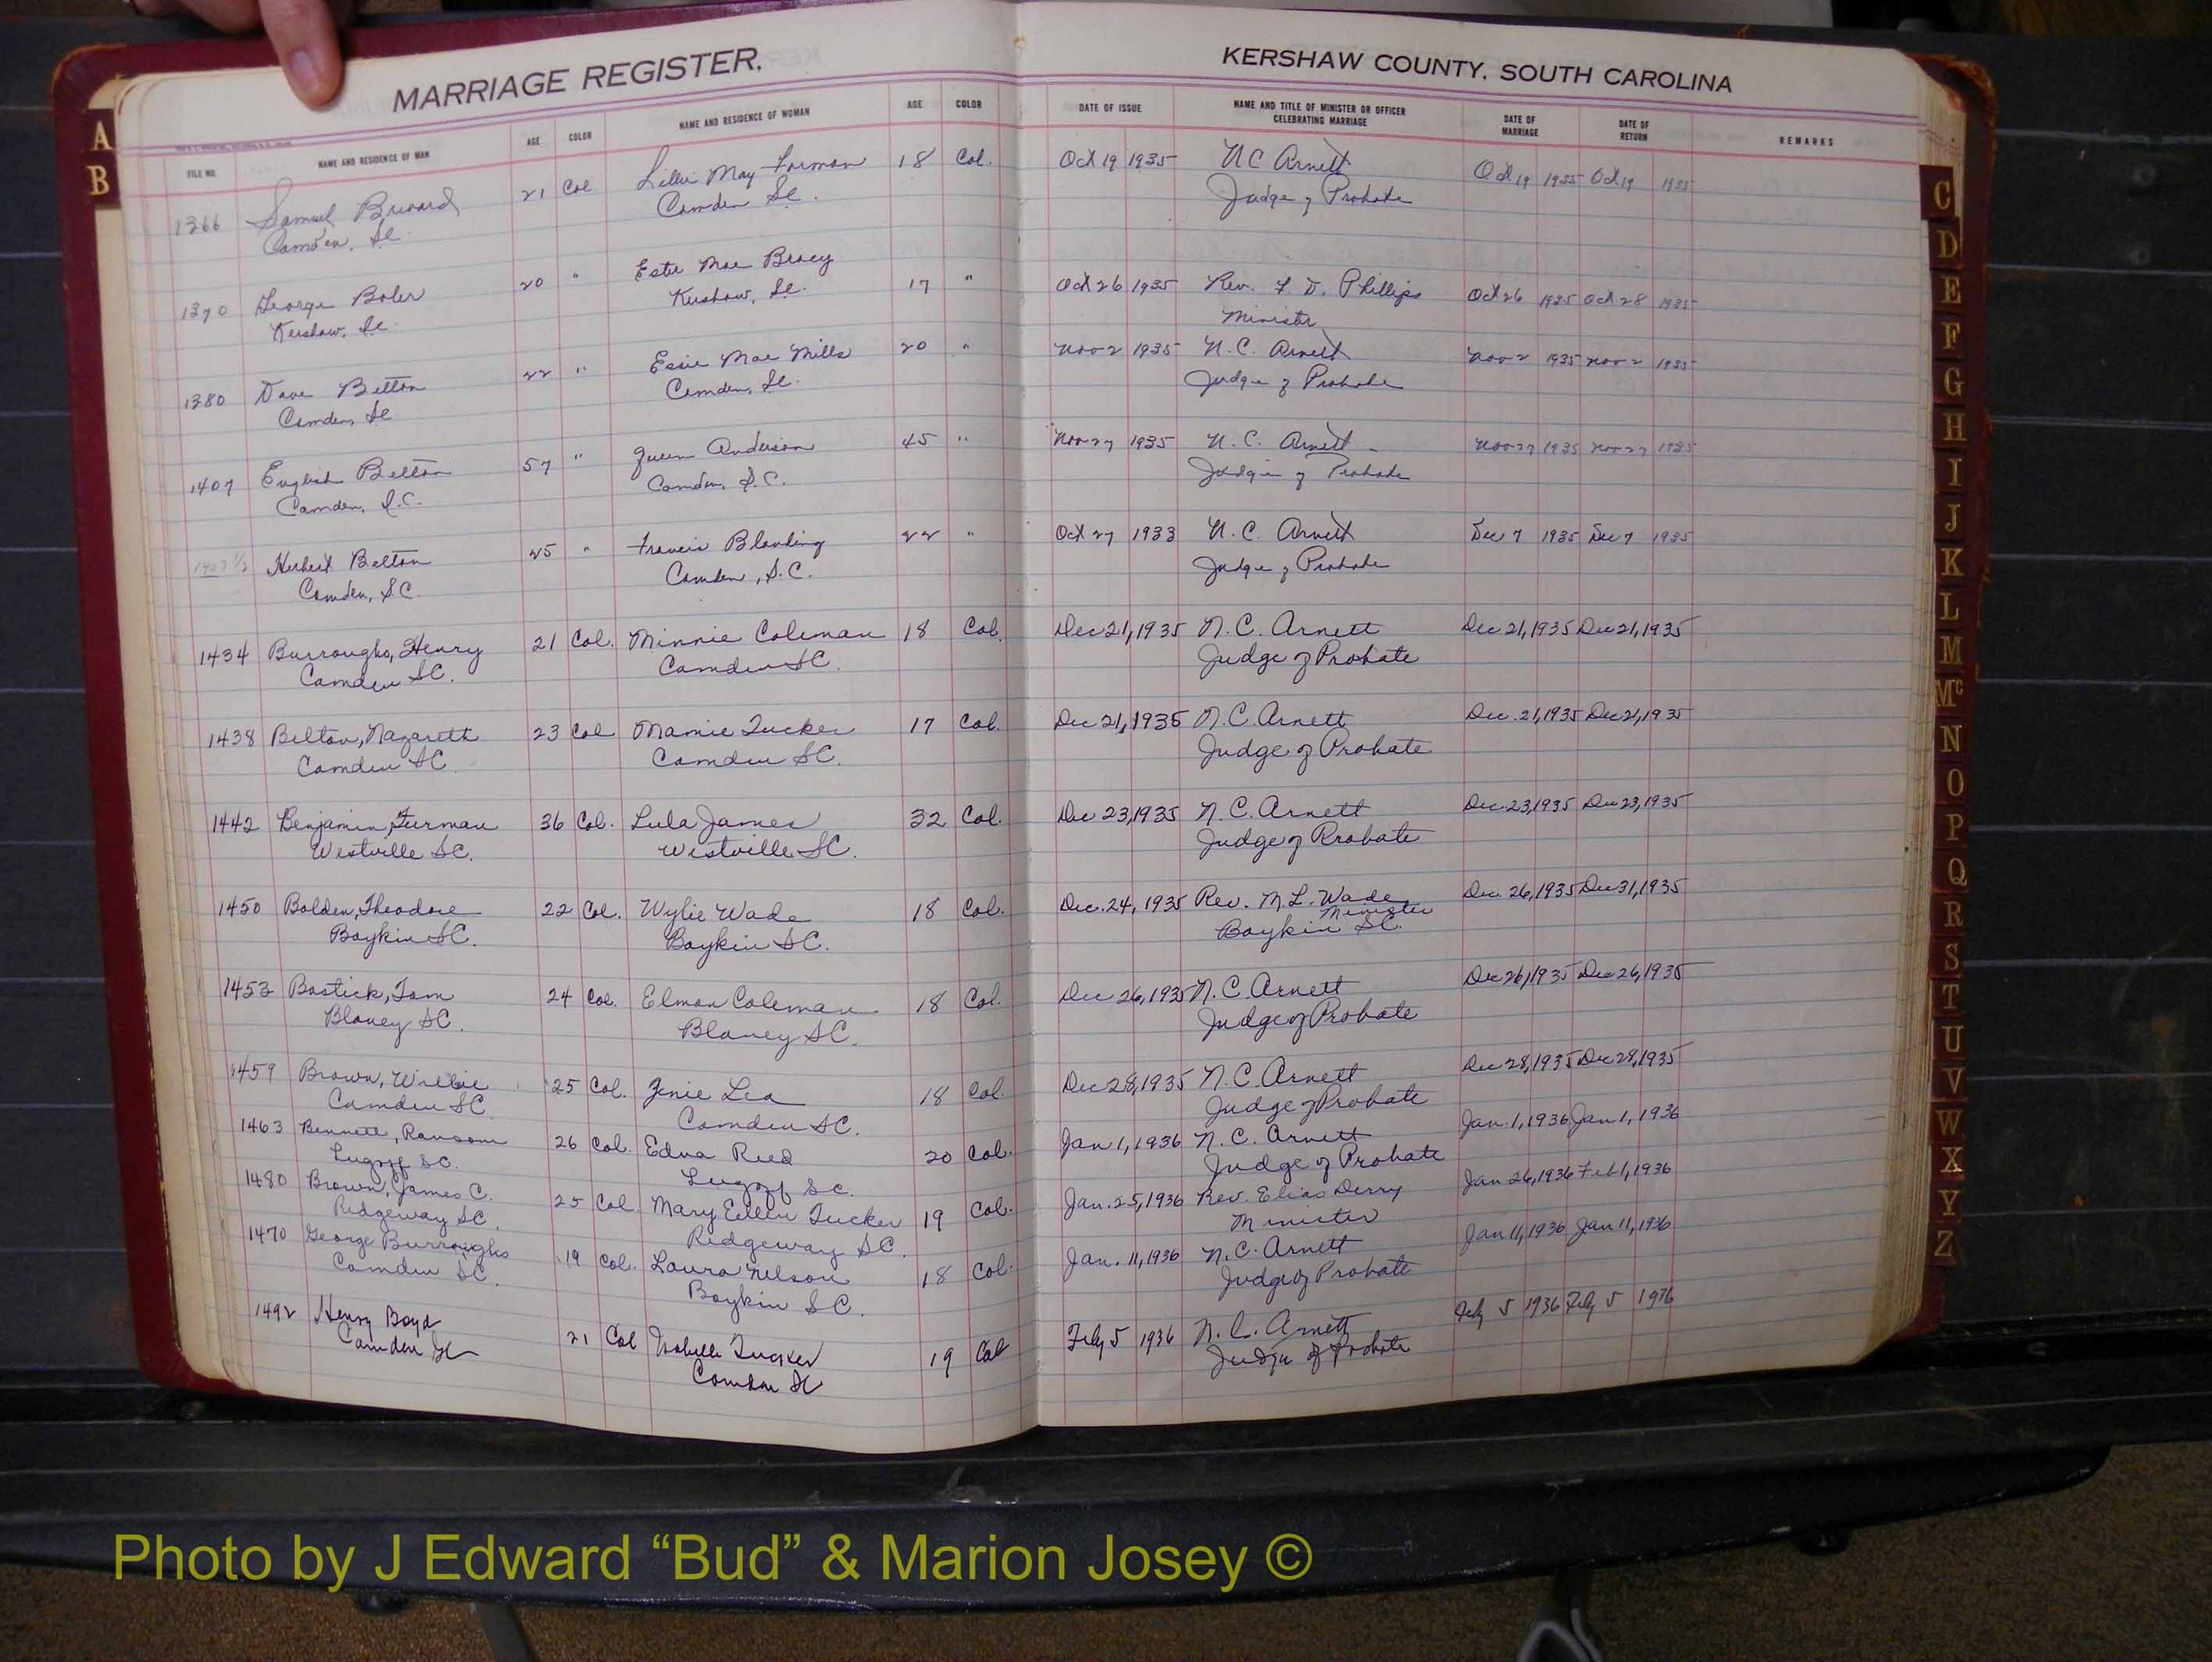 MARRIAGE REGISTER,
KERSHAW COUNTY, SOUTH CAROLINA
FILE NO. NAME AND RESIDENCE OF MAN AGE COLOR NAME AND RESIDENCE OF WOMAN AGE COLOR DATE OF ISSUE NAME AND TITLE OF MINISTER OR OFFICER CELEBRATING MARRIAGE DATE OF MARRIAGE DATE OF RETURN REMARKS
1366 Samuel 21 Col Lillie May 18 Col. Oct 19 1935 N C Arnett Oct 19 1935 Oct 19 1935
Camden, SC Camden SC. Judge of Probate
1370 George Boler 20 " Ester Mae Bracy 17 " Oct 26 1935 Rev. Phillips Oct 26 1935 Oct 28 1935
Kershaw, SC Kershaw, SC. Minister
1380 Dave Belton 22 " Essie Mae Mills 20 " Nov 2 1935 N. C. Arnett Nov 2 1935 Nov 2 1935
Camden, SC Camden, SC. Judge of Probate
1407 English Belton 57 " Queen Anderson 45 " Nov 27 1935 N. C. Arnett Nov 27 1935 Nov 27 1935
Camden, S.C. Camden, S.C. Judge of Probate
1407 1/2 Herbert Belton 25 " Francis Blanding 22 " Oct 27 1933 N. C. Arnett Dec 7 1935 Dec 7 1935
Camden, S.C. Camden, S.C. Judge of Probate
1434 Burroughs, Henry 21 Col. Minnie Coleman 18 Col. Dec 21, 1935 N. C. Arnett Dec 21, 1935 Dec 21, 1935
Camden SC. Camden SC. Judge of Probate
1438 Belton, Nazareth 23 Col Mamie Tucker 17 Col. Dec 21, 1935 N. C. Arnett Dec. 21, 1935 Dec 21, 1935
Camden SC. Camden SC. Judge of Probate
1442 Benjamin, Furman 36 Col. Lula James 32 Col. Dec 23, 1935 N. C. Arnett Dec. 23, 1935 Dec 23, 1935
Westville SC. Westville SC. Judge of Probate
1450 Bolden, Theodore 22 Col. Wylie Wade 18 Col. Dec. 24, 1935 Rev. M. L. Wade Dec. 26, 1935 Dec 31, 1935
Minister
Boykin SC. Boykin SC. Boykin SC.
1453 Bostick, Tom 24 Col. Elmon Coleman 18 Col. Dec 26, 1935 N. C. Arnett Dec 26, 1935 Dec 26, 1935
Blaney SC. Blaney SC. Judge of Probate
1459 Brown, Willie 25 Col. Zenie Lea 18 Col. Dec 28, 1935 N. C. Arnett Dec 28, 1935 Dec 28, 1935
Camden SC Camden SC. Judge of Probate
1463 Bennett, Ransom 26 Col. Edna Reed 20 Col. Jan 1, 1936 N. C. Arnett Jan. 1, 1936 Jan 1, 1936
Lugoff SC. Lugoff SC. Judge of Probate
1480 Brown, James C. 25 Col. Mary Ellen Tucker 19 Col. Jan. 25, 1936 Rev. Elias Derry Jan 26, 1936 Feb 1, 1936
Ridgeway SC. Ridgeway SC. Minister
1470 George Burroughs 19 Col. Laura Nelson 18 Col. Jan. 11, 1936 N. C. Arnett Jan 11, 1936 Jan 11, 1936
Camden SC. Boykin SC. Judge of Probate
1492 Henry Boyd 21 Col Isabelle Tucker 19 Col Feby 5 1936 N. C. Arnett Feby 5 1936 Feby 5 1936
Camden SC Camden SC Judge of Probate
A
B
C
D
E
F
G
H
I
J
K
L
M
Mc
N
O
P
Q
R
S
T
U
V
W
X
Y
Z
Photo by J Edward “Bud” & Marion Josey ©